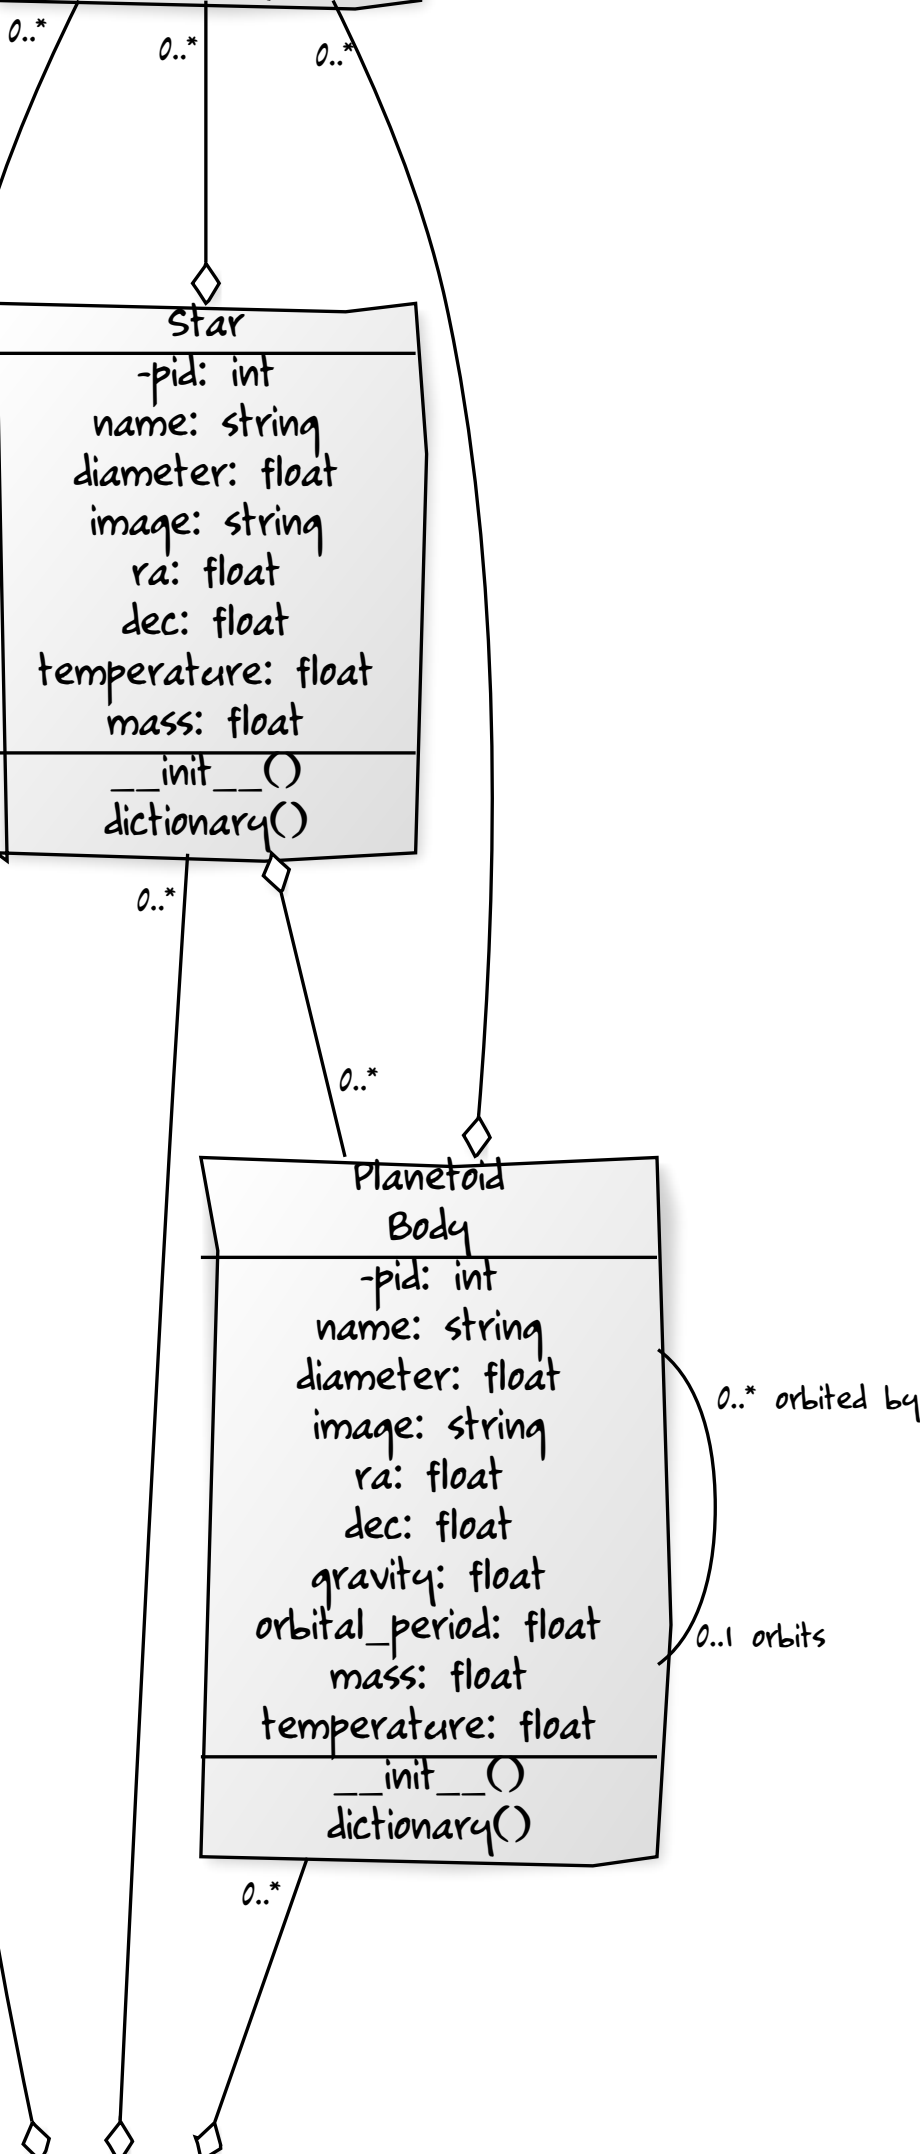 0..*
0..*
0..*
Star
-pid: int
name: string
diameter: float
image: string
ra: float
dec: float
temperature: float
mass: float
__init__()
dictionary()
0..*
0..*
Planetoid
Body
-pid: int
name: string
diameter: float
image: string
ra: float
dec: float
gravity: float
orbital_period: float
mass: float
temperature: float
__init__()
dictionary()
0..* orbited by
0..1 orbits
0..*